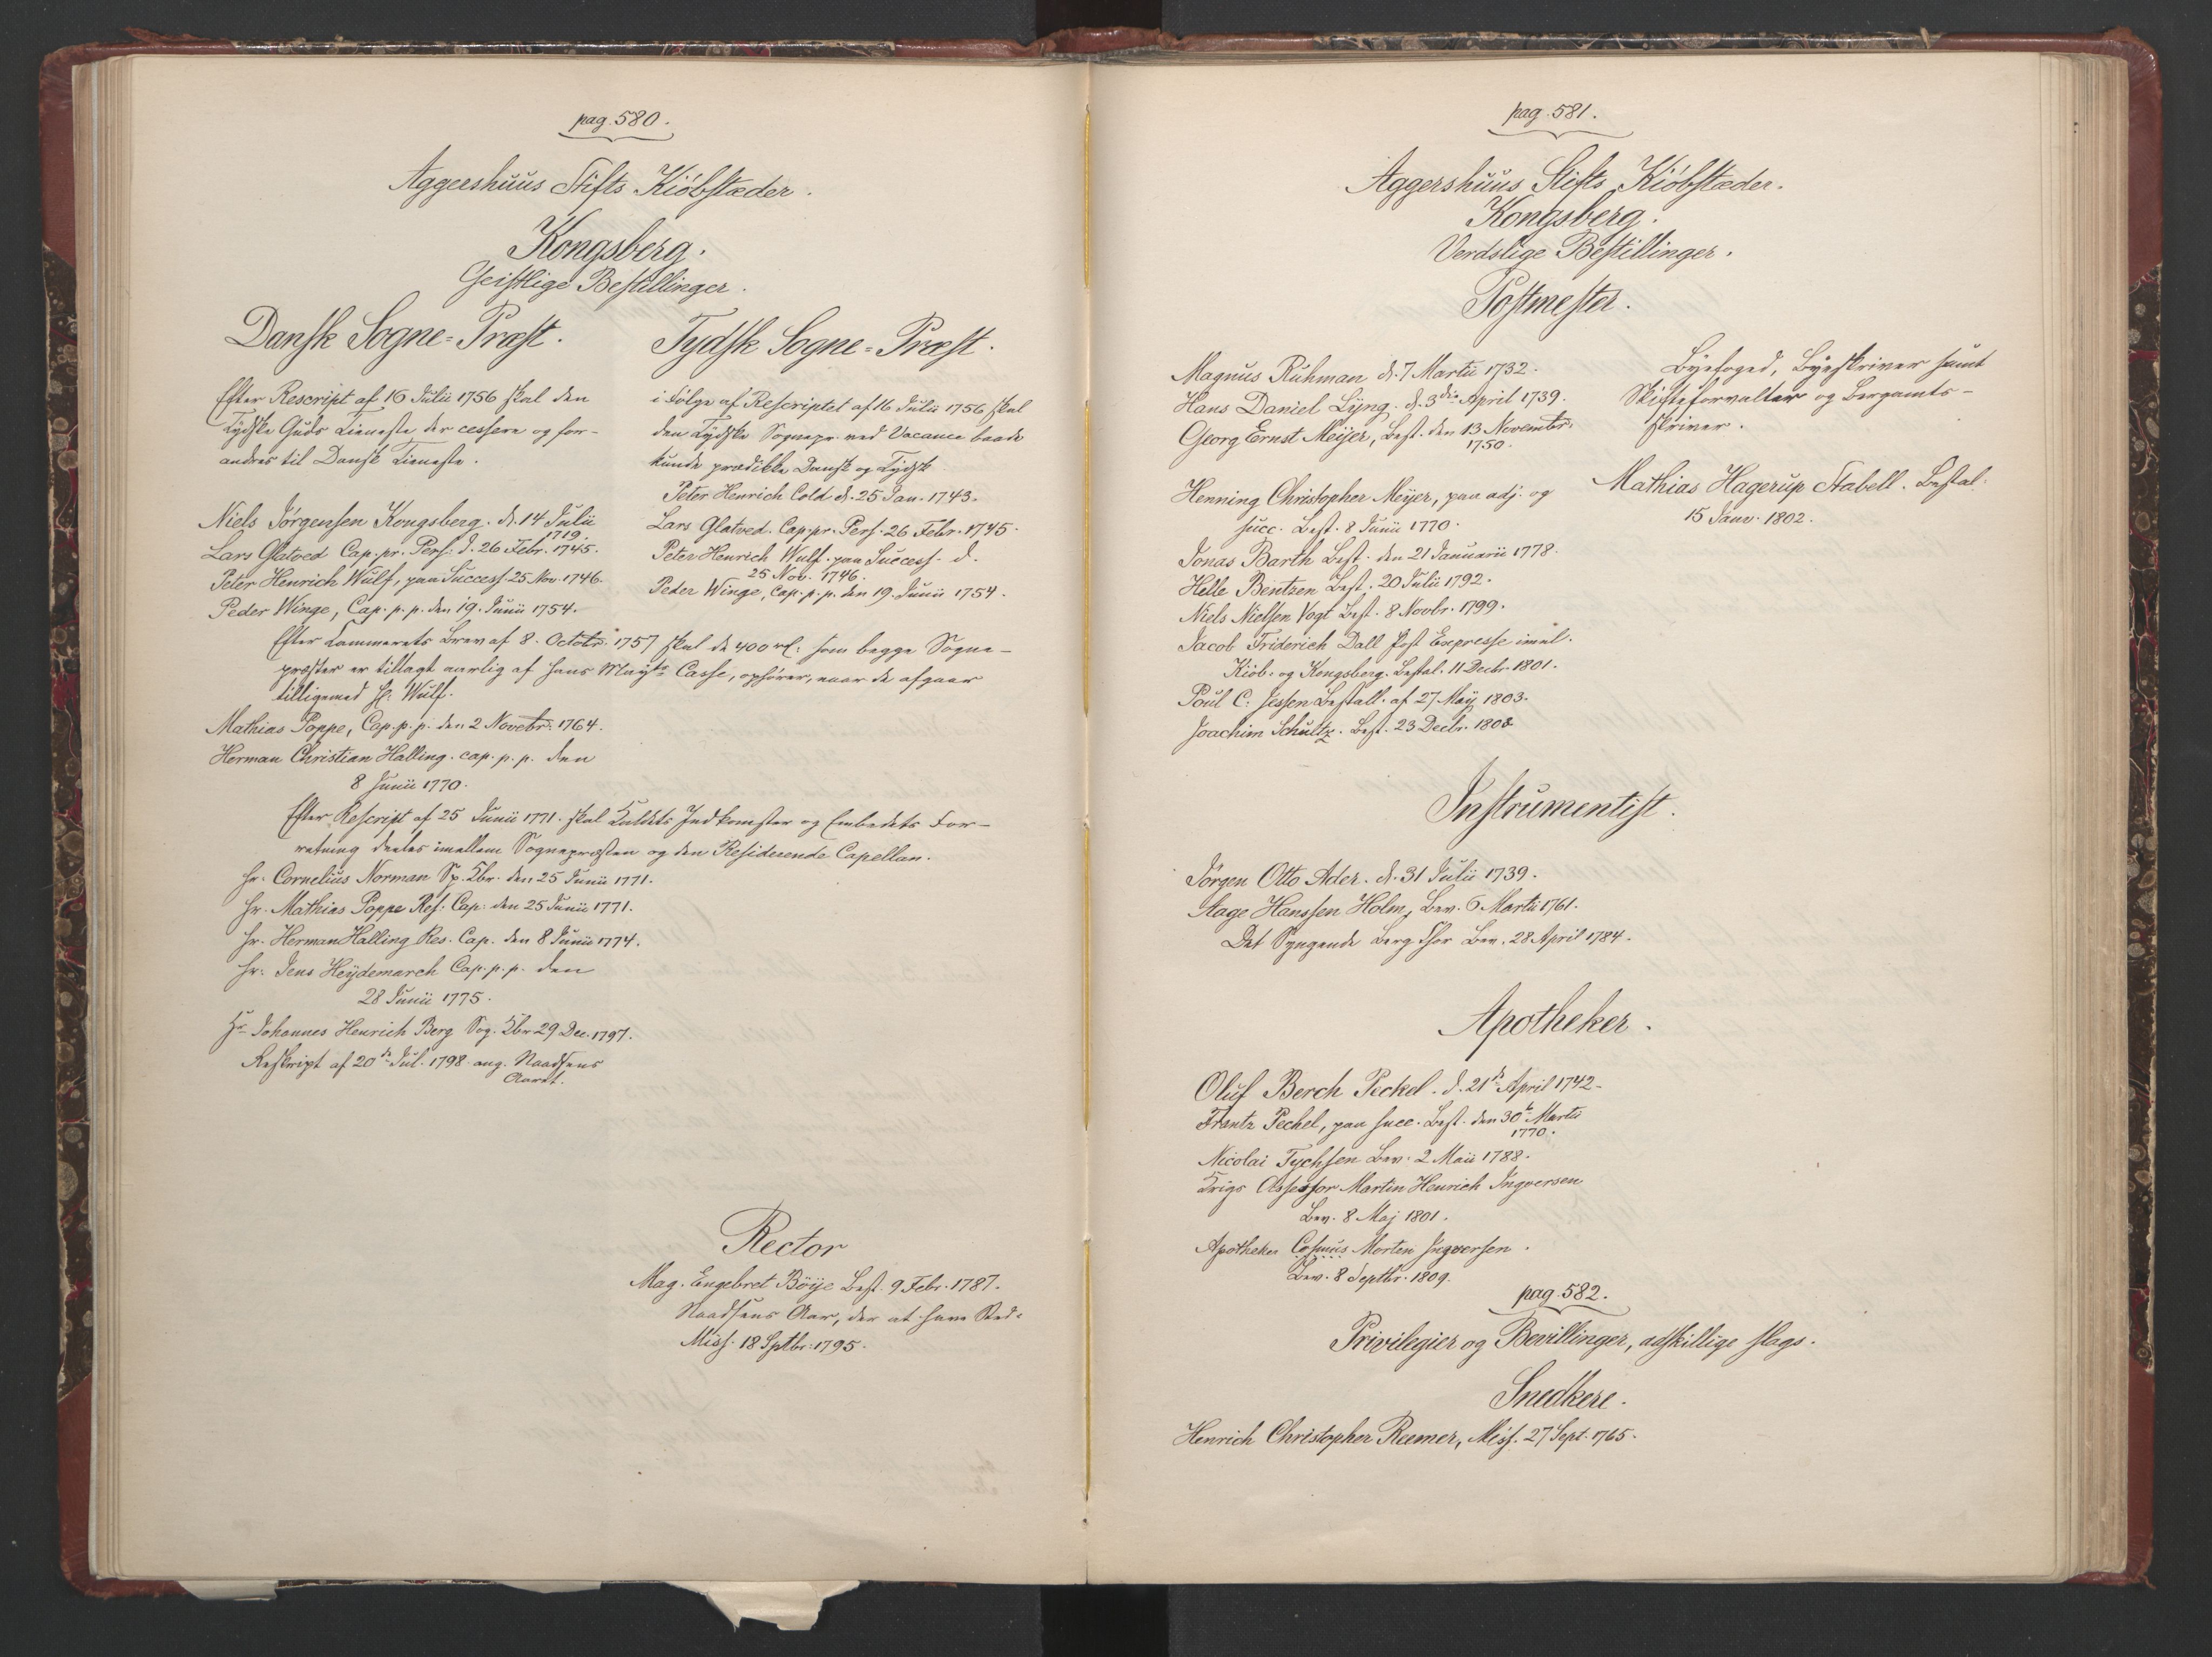 pag. 580.
Aggershuus Stifts Kiöbstæder.
Kongsberg.
Geistlige Bestillinger.
Dansk Sogne=Præst.
Efter Rescript af 16 Julii 1756 skal den
Tydske Guds Tieneste der cessere og for-
andres til Dansk Tieneste.
Niels Jörgensen Kongsberg. d. 14 Julii
1719.
Lars Glatved Cap. pr. Pers: d. 26 Febr. 1745.
Peter Henrich Wulf, paa Success. 25 Nov. 1746.
Peder Winge, Cap. p. p. den 19. Junii 1754.
Tydsk Sogne=Præst.
i Følge af Rescriptet af 16 Julii 1756 skal
den Tydske Sognepr. ved Vacance baade
kunde prædikke Dansk og Tydsk
Peter Henrich Cold d. 25 Jan. 1743.
Lars Glatved. Cap. pr. Pers. 26 Febr. 1745.
Peter Henrich Wulf. paa Success. d.
25 Nov. 1746.
Peder Winge, Cap. p. p. den 19. Junii 1754.
Efter Cammerets Brev af 8. Octobr. 1757 skal de 400 rd: som begge Sogne-
præster er tillagt aarlig af Hans Mayts Casse, ophörer, naar de afgaar
tilligemed Hr: Wulf.
Mathias Poppe, Cap. p. p. den 2 Novebr. 1764.
Herman Christian Halling. cap. p. p. den
8 Junii 1770.
Efter Rescript af 25 Junii 1771. skal Kaldets Indkomster og Embedets For-
retning deeles imellem Sognepræsten og den Residerende Capellan.
Hr. Cornelius Norman Sp. Kbr. den 25 Junii 1771.
Hr. Mathias Poppe Res: Cap: den 25 Junii 1771.
Hr. Herman Halling Res. Cap. den 8 Junii 1774.
Hr. Jens Heÿdemarch Cap. p. p. den
28 Junii 1775.
Hr. Johannes Henrich Berg Sog. Kbr 29 Dec. 1797.
Reskript af 20de Jul. 1798 ang. Naadsens
Aaret.
Rector
Mag. Engebret Böÿe Best. 9 Febr. 1787.
Naadsens Aar, der at have Sted:
Miss. 18 Sptbr. 1795.
pag. 581.
Aggershuus Stifts Kiöbstæder.
Kongsberg.
Verdslige Bestillinger.
Postmester.
Magnus Ruhman d. 7 Martii 1732.
Hans Daniel Lÿng. d. 3die April 1739.
Georg Ernst Meijer, Best. den 13 Novembr.
1750.
Henning Christopher Meÿer, paa adj. og
succ. Best. 8 Junii 1770.
Jonas Barth Best. den 21 Januarii 1778.
Helle Bentzen Best. 20 Julii 1792.
Niels Nielsen Vogt Best. 8 Novbr. 1799.
Jacob Friderich Dall Post Expresse imel.
Kiöb. og Kongsberg. Bestal. 11 Decbr. 1801.
Poul C. Jessen Bestall. af 27 Maÿ 1803.
Joachim Schultz. Best. 23 Decbr. 1808
Byefoged, Byeskriver samt
Skifteforvalter og Bergamts-
skriver.
Mathias Hagerup Stabell. Bestal.
15 Janv. 1802.
Instrumentist.
Jörgen Otto Ader. d. 31 Julii 1739.
Aage Hanssen Holm, Bev. 6 Martii 1761.
Det Syngende Berg Chor Bev. 28 April 1784.
Apotheker.
Oluf Berch Peckel. d. 21de April 1742.
Frantz Pechel, paa succ. Best. den 30te Martii
1770.
Nicolai Tychsen Bev. 2 Maii 1788.
Krigs Assessor Martin Henrich Ingversen
Bev. 8 Maj 1801.
Apotheker Cosmus Morten Ingversen.
Bev. 8 Septbr. 1809.
pag. 582.
Privilegier og Bevillinger, adskillige slags.
Snedkere.
Henrich Christopher Reemer, Miss. 27 Sept. 1765.